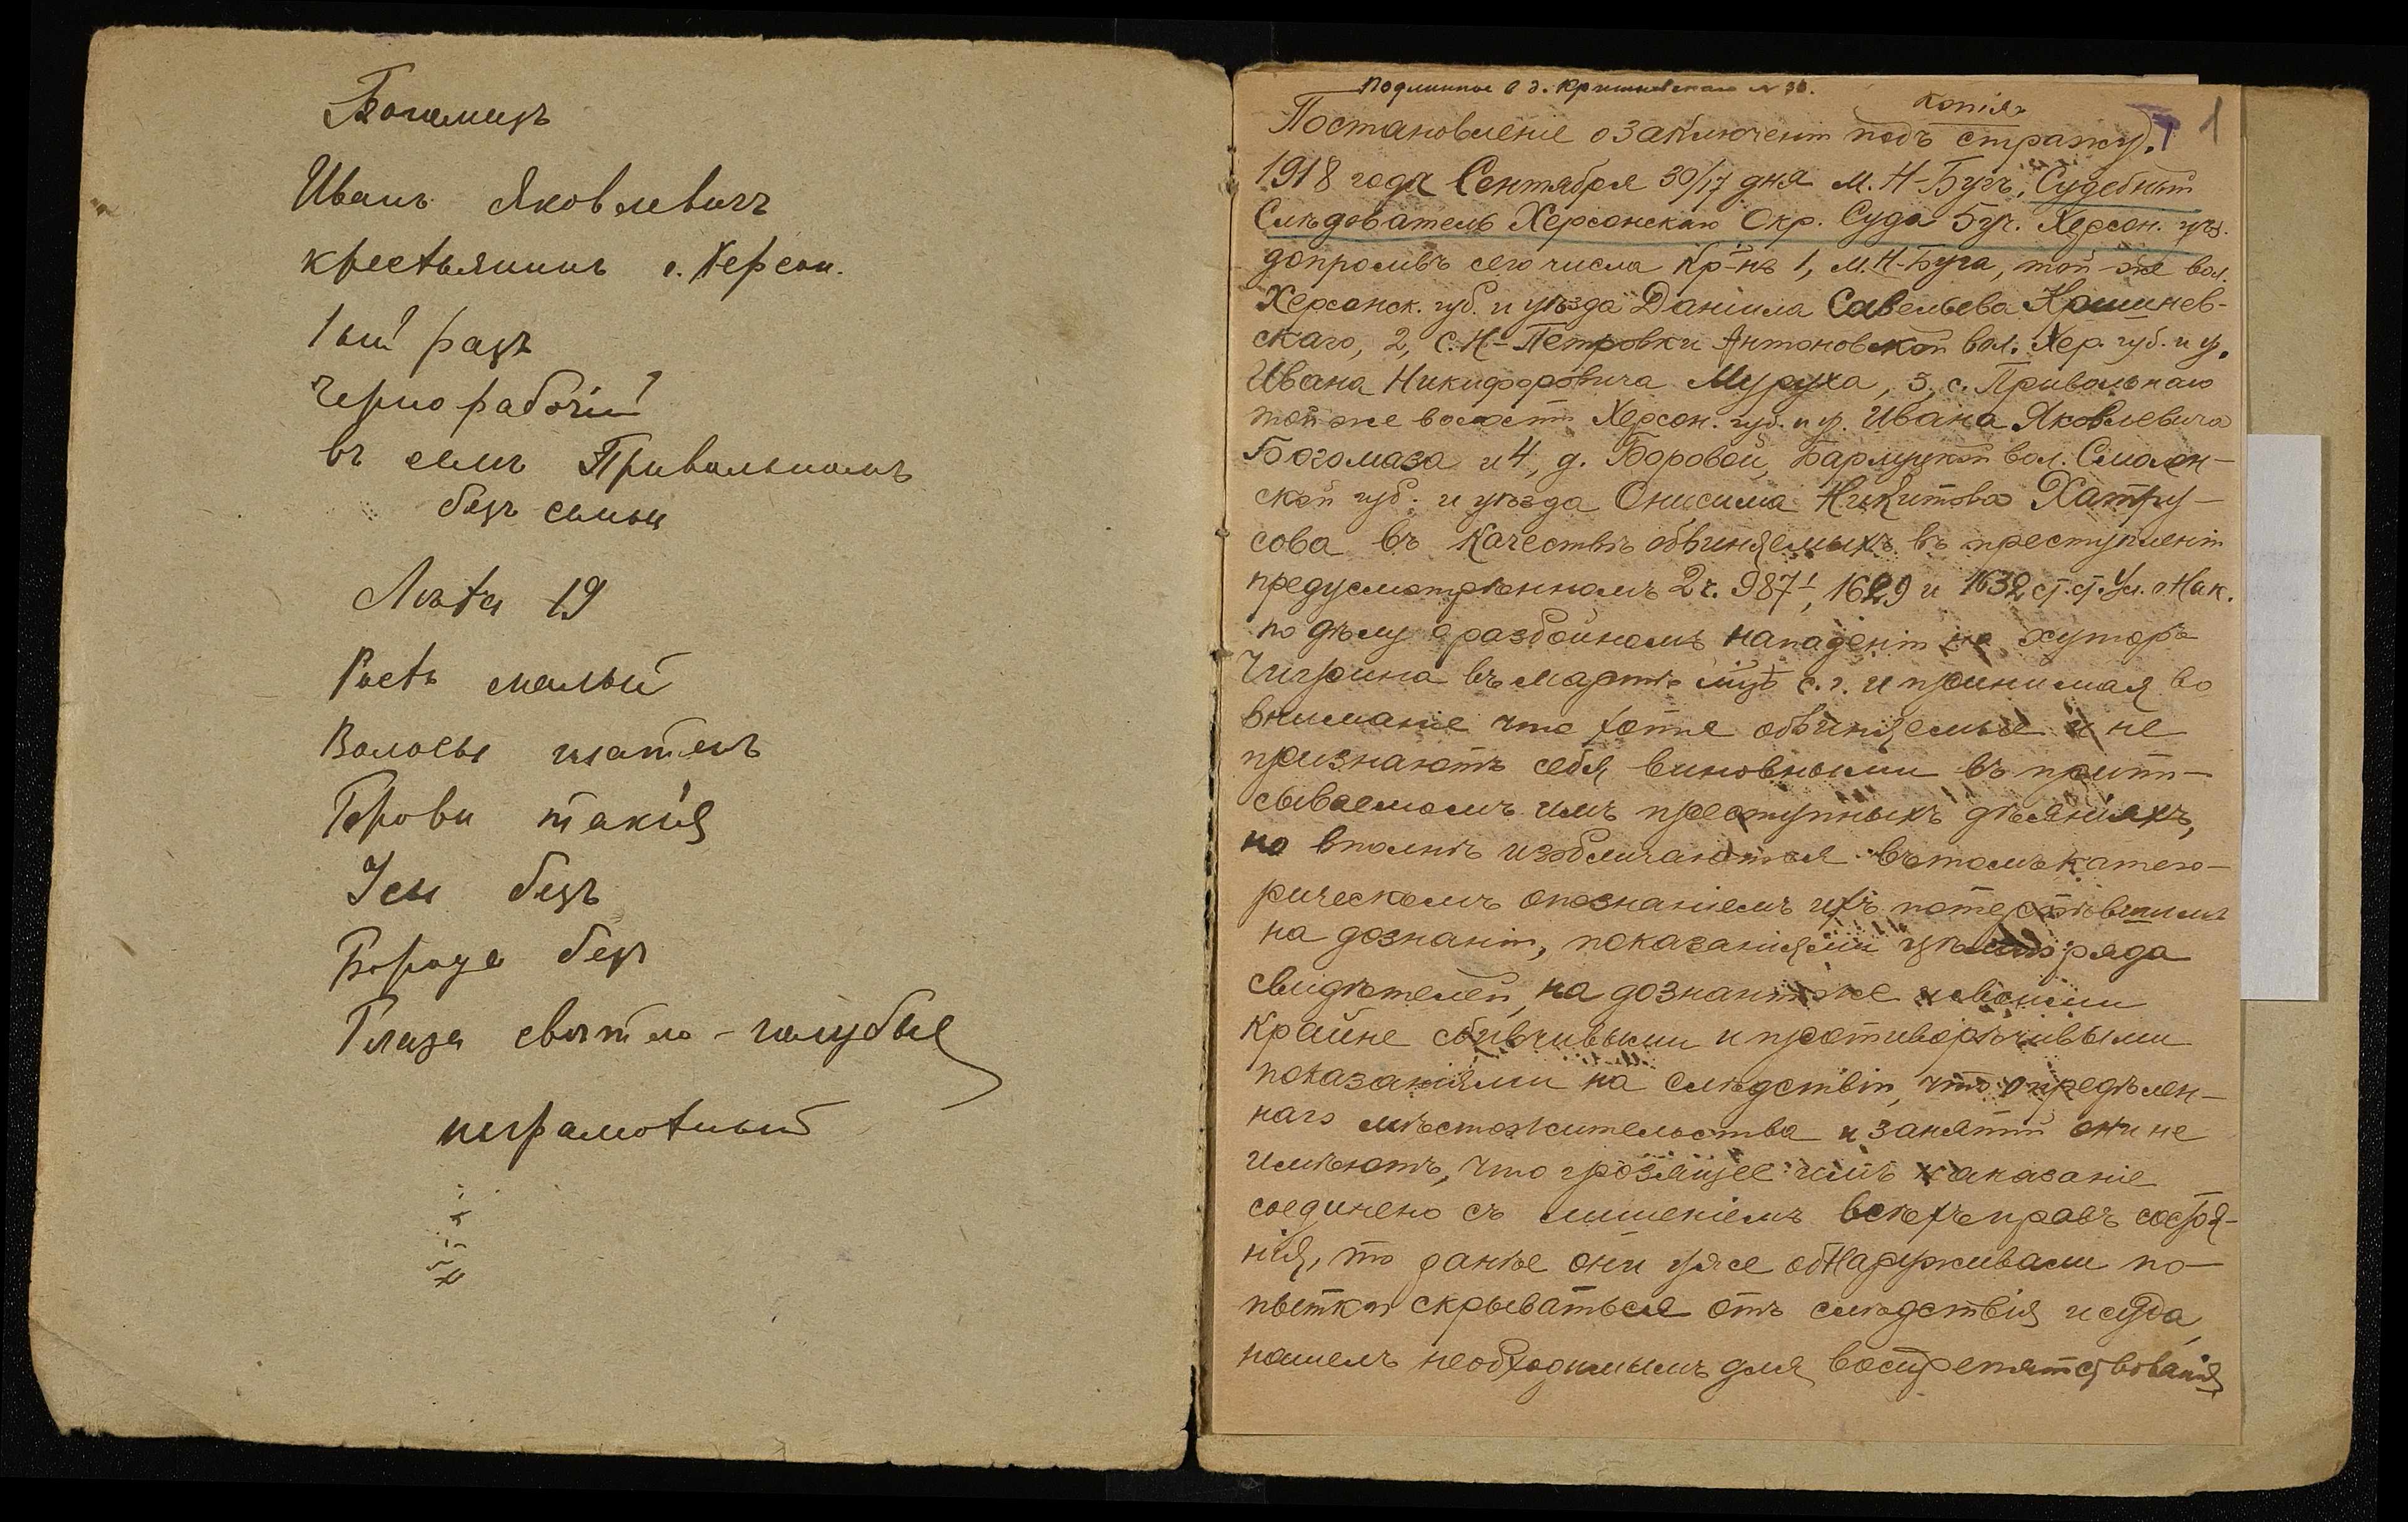 Богомазъ
Иванъ Яковлевичъ
крестьянинъ г. Херсон.
1ый разъ
Чернорабочій
въ селѣ Привольномъ
безъ семьи
Лѣта 19
Ростъ малый
Волосы шатенъ
Брови такія
Усы безъ
Борода безъ
Глаза свѣтло-голубые
неграмотный
Подлинное в д. Кришневскаго № 30.
Копія
Постановленіе о заключеніи подъ стражу. 1
1918 года Сентября 30/17 дня м. Н-Бугъ, Судебный
Слѣдователь Херсонскаго Окр. Суда 5 уч. Херсон. уѣз.
допросивъ сего числа кр-нъ 1, м. Н-Буга, той-же вол.
Херсонск. губ. и уѣзда Даніила Савельева Кришнев-
скаго, 2, с. Н-Петровки Антоновской вол. Хер. губ. и у.
Ивана Никифоровича Муруха, 3, с. Привольнаго
той же волости Херсон. губ. и у. Ивана Яковлевича
Богомаза и 4, д. Боровой, вол. Смолен-
ской губ. и уѣзда Онисима Никитова Хатру-
сова въ качествѣ обвиняемыхъ въ преступленіи
предусмотрѣнномъ 2 ч. 987¹, 1629 и 1632 ст. ст. Ул. о Нак.
по дѣлу о разбойномъ нападеніи на хуторъ
Чигрина въ мартѣ мцѣ с. г. и принимая во
вниманіе что хотя обвиняемые и не
признаютъ себя виновными въ припи-
сываемомъ имъ преступныхъ дѣяніяхъ,
но вполнѣ изобличаются въ томъ катего-
рическомъ опознаніемъ ихъ потерпѣвшими
на дознаніи, показаніями цѣлаго ряда
свидѣтелей на дознаніи же и своими
крайне сбивчивыми и противорѣчивыми
показаніями на слѣдствіи, что опредѣлен-
наго мѣстожительства и занятій они не
имѣютъ, что грозящее имъ наказаніе
соединено съ лишеніемъ всѣхъ правъ состоя-
нія, то ранѣе они уже обнаруживали по-
пытки скрываться отъ слѣдствія и суда,
нашелъ необходимымъ для воспрепятствованія